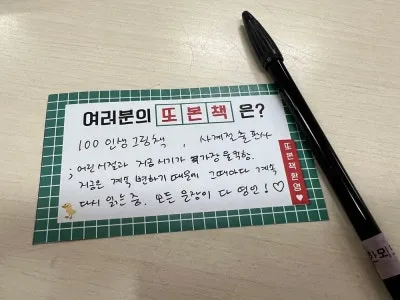 여러분의 또 본 책 은?
100 인생 그림책 , 사계절 출판사
; 어린 시절과 지금 시기가 가장 울컥함.
지금은 계속 변하기 때문에 그때마다 계속
다시 읽는 중. 모든 문장이 다 명언! ♡
또본책환영♥